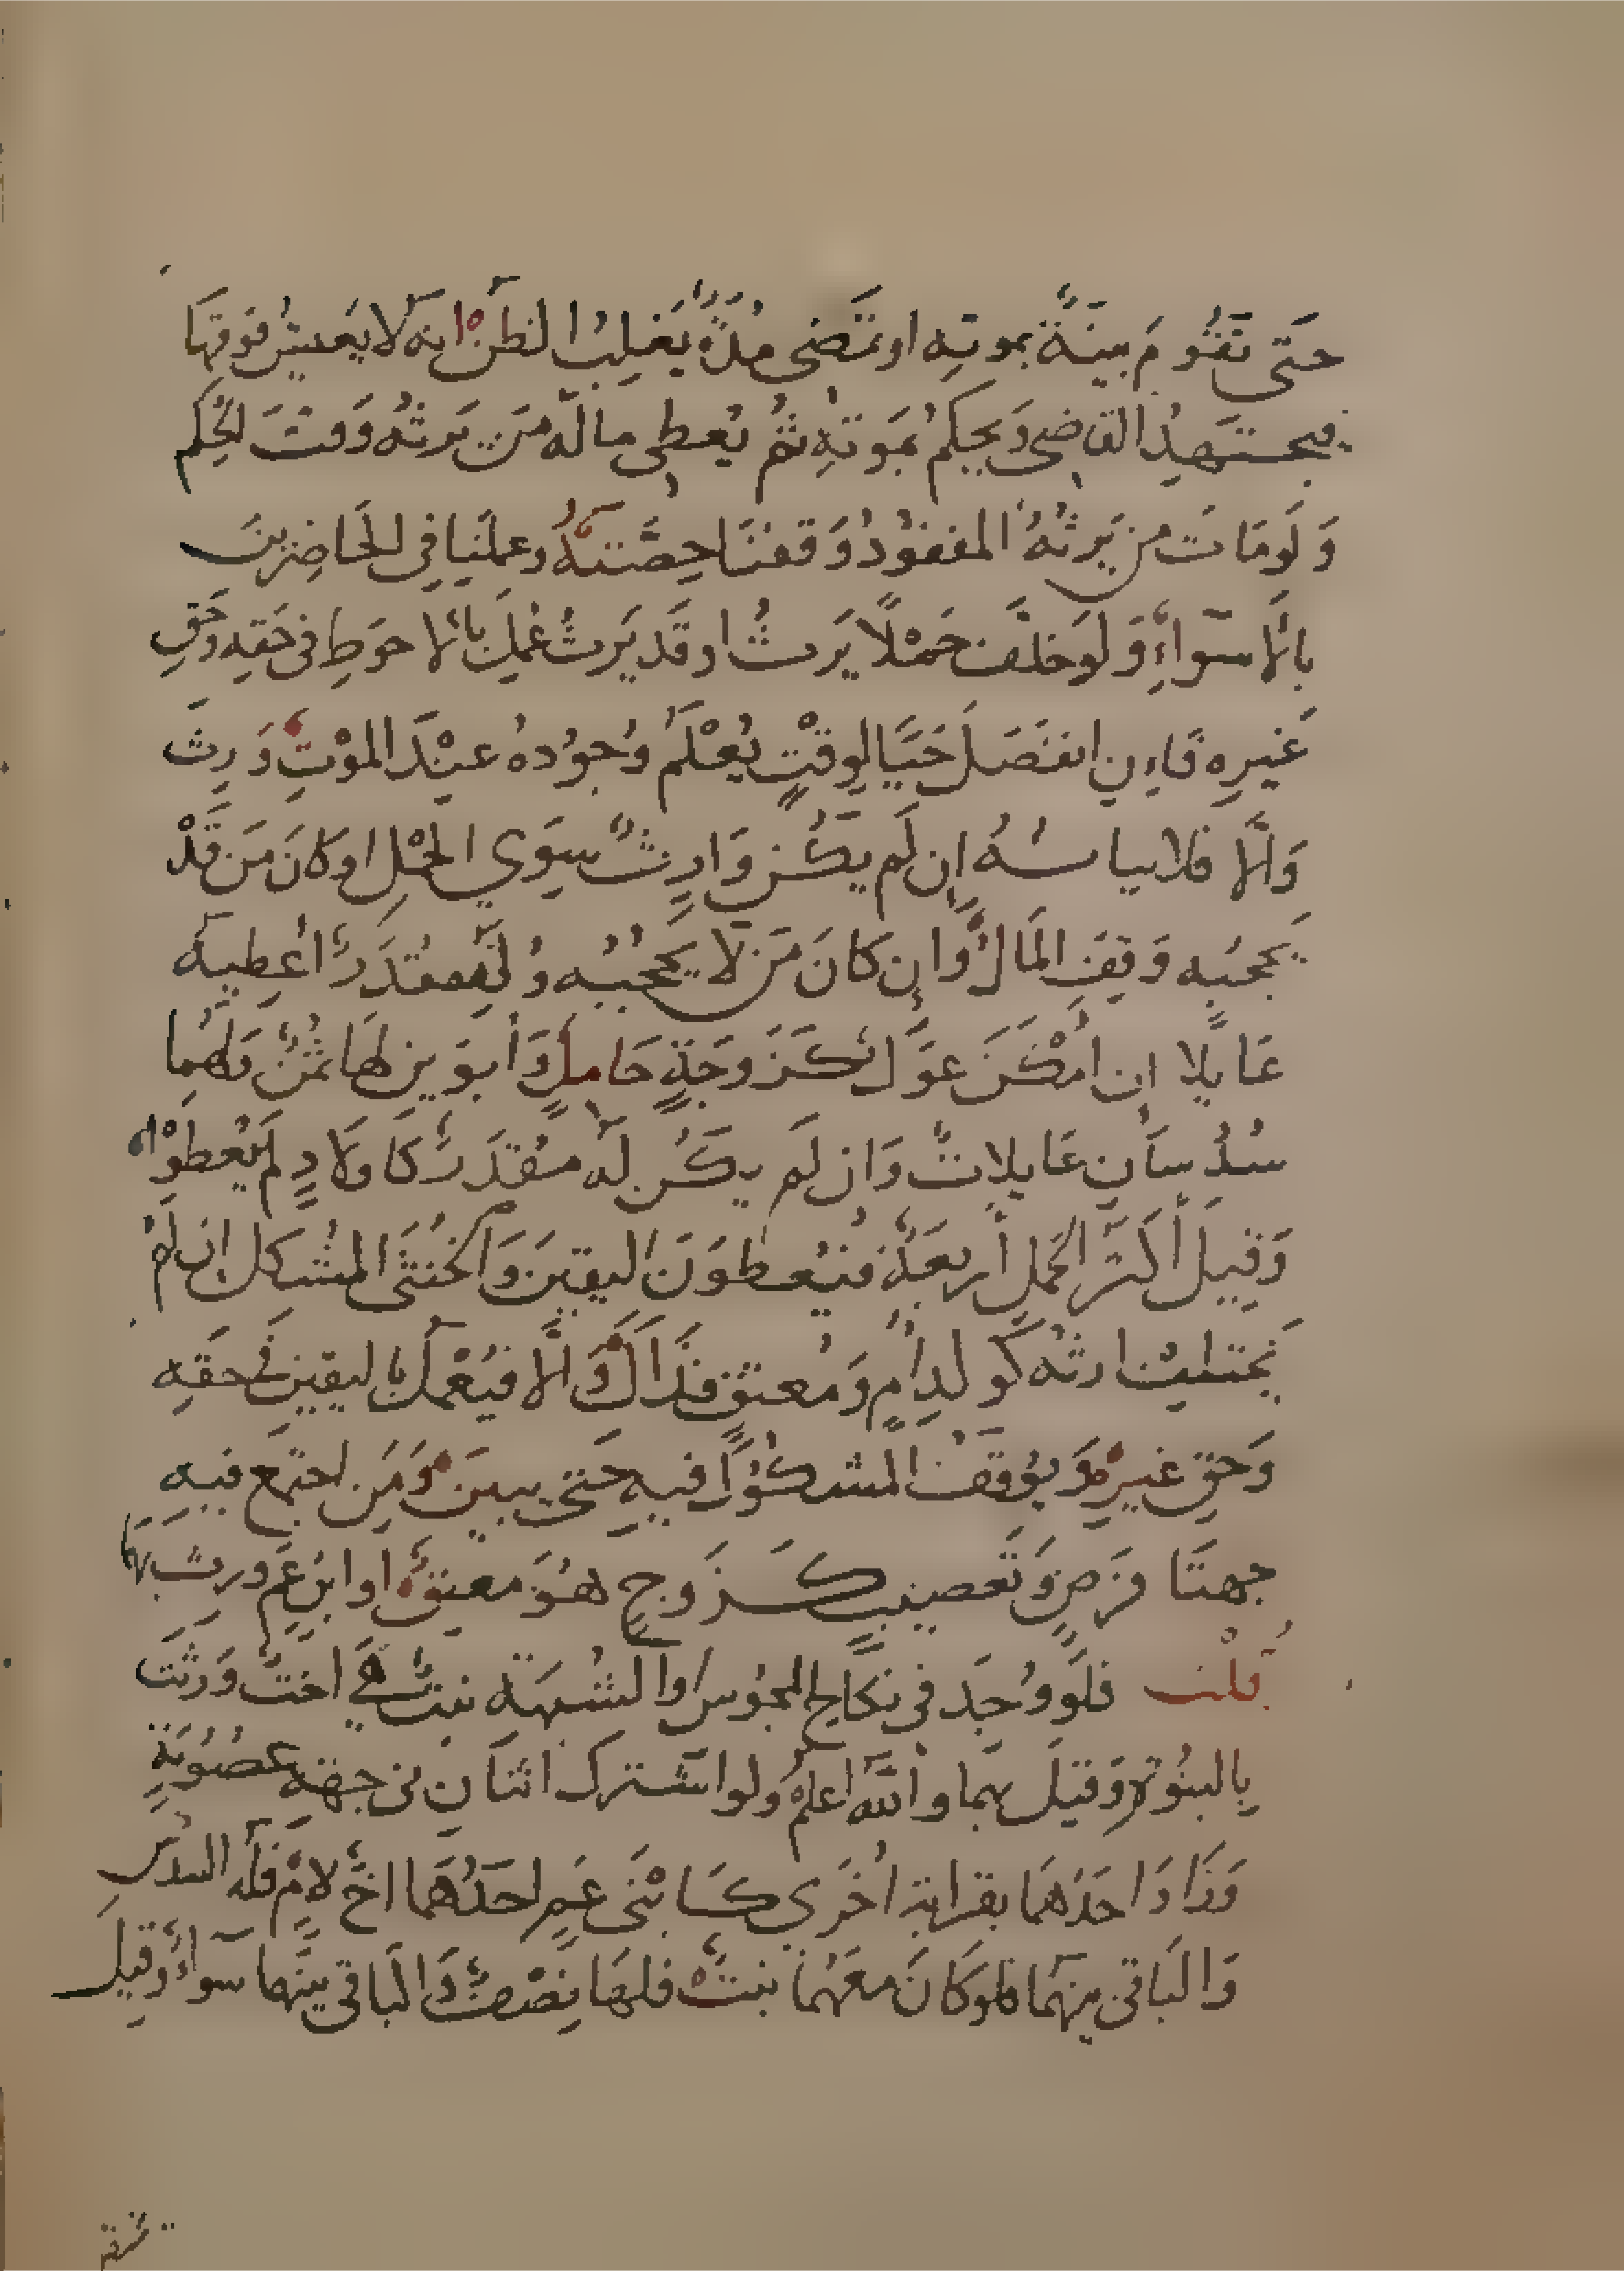 حَتَّى تَقُومَ بَيِّنَةٌ بموتِهِ او تَمضى مُدَّةٌ يَغلِبُ الظنُّ انه لا يَعيشُ فوقَهَا
فيجتَهِدُ القاضى وَيحكمُ بمَوتهِ ثُمَّ يُعطى ماله مَن يَرثُه وَقتَ الحُكم
وَلَو مَاتَ مِن يَرثُهُ المفقُودُ وَقفنَا حِصَّتهُ وعملنَا فى الحَاضِرِينَ
بالاسوَاءِ وَلو خلّفَ حَمْلاً يَرثُ او قَد يَرثُ عُمِلَ بالاحوَطِ فى حَقهِ وَحَقِ
غَيرِه فَاءِن انفَصَلَ حَيًّا لوقْتٍ يُعْلَمُ وُجوُدهُ عنْدَ الموْتِ وَرِثَ
وَالَّا فلا بيانهُ إن لَم يكُن وَارِثٌ سِوَي الحَمْلِ او كانَ مَن قَدْ
يحجبُه وَقِفَ المَالُ وان كانَ مَن لا يحجبُه وُله مقدَرٌ اعطيه
عَايلا ان امْكَنَ عَوَلٌ كزَوجَةٍ حَاملٍ وَأبوَين لهَا ثمنٌ وَلهمَا
سُدُسانِ عَايلاتٌ وَان لَم يكُن له مُقَدَرٌ كاولادٍ لَم يُعْطَوْا
وَقِيلَ أكثرُ الحَملِ أربعَةٌ فيُعطوَنَ اليقينَ وَالخُنثَى المشكل ان لَم
يختلِفْ ارثه كولدِ امٍ وَمُعتِقٍ فذَاكَ وَالَّا فيُعْمَلُ باليقينِ في حقهِ
وَحقِ غيرِهِ وَيُوقَفُ المشكُوكُ فيهِ حَتى يبينَ وَمَن اجتمع فيهِ
جهتَا فرَضٍ وَتَعصيبٍ كزَوجٍ هُوَ معتِقٌ او ابن عَمٍ ورِثَ بهما
قلت فلَو وُجدَ في نكاح المجُوس او الشُبهَةِ بنتٌ هِيَ اختٌ وَرثَت
بِالبنُوةِ وَقيلَ بهما والله اعلمُ ولو اشترك اثنانِ فى جهةِ عصُوبَةٍ
وَزَادَ احدُهمَا بقرابةٍ اُخرَى كَابْنَى عَمٍ احدُهُمَا اخٌ لامٍ فله السُدسُ
وَالبَاقى بينهمَا فلو كَانَ معَهُمَا بنتٌ فلهَا نِصْفٌ وَالبَاقى بينهما سوَاءٌ وقيلَ